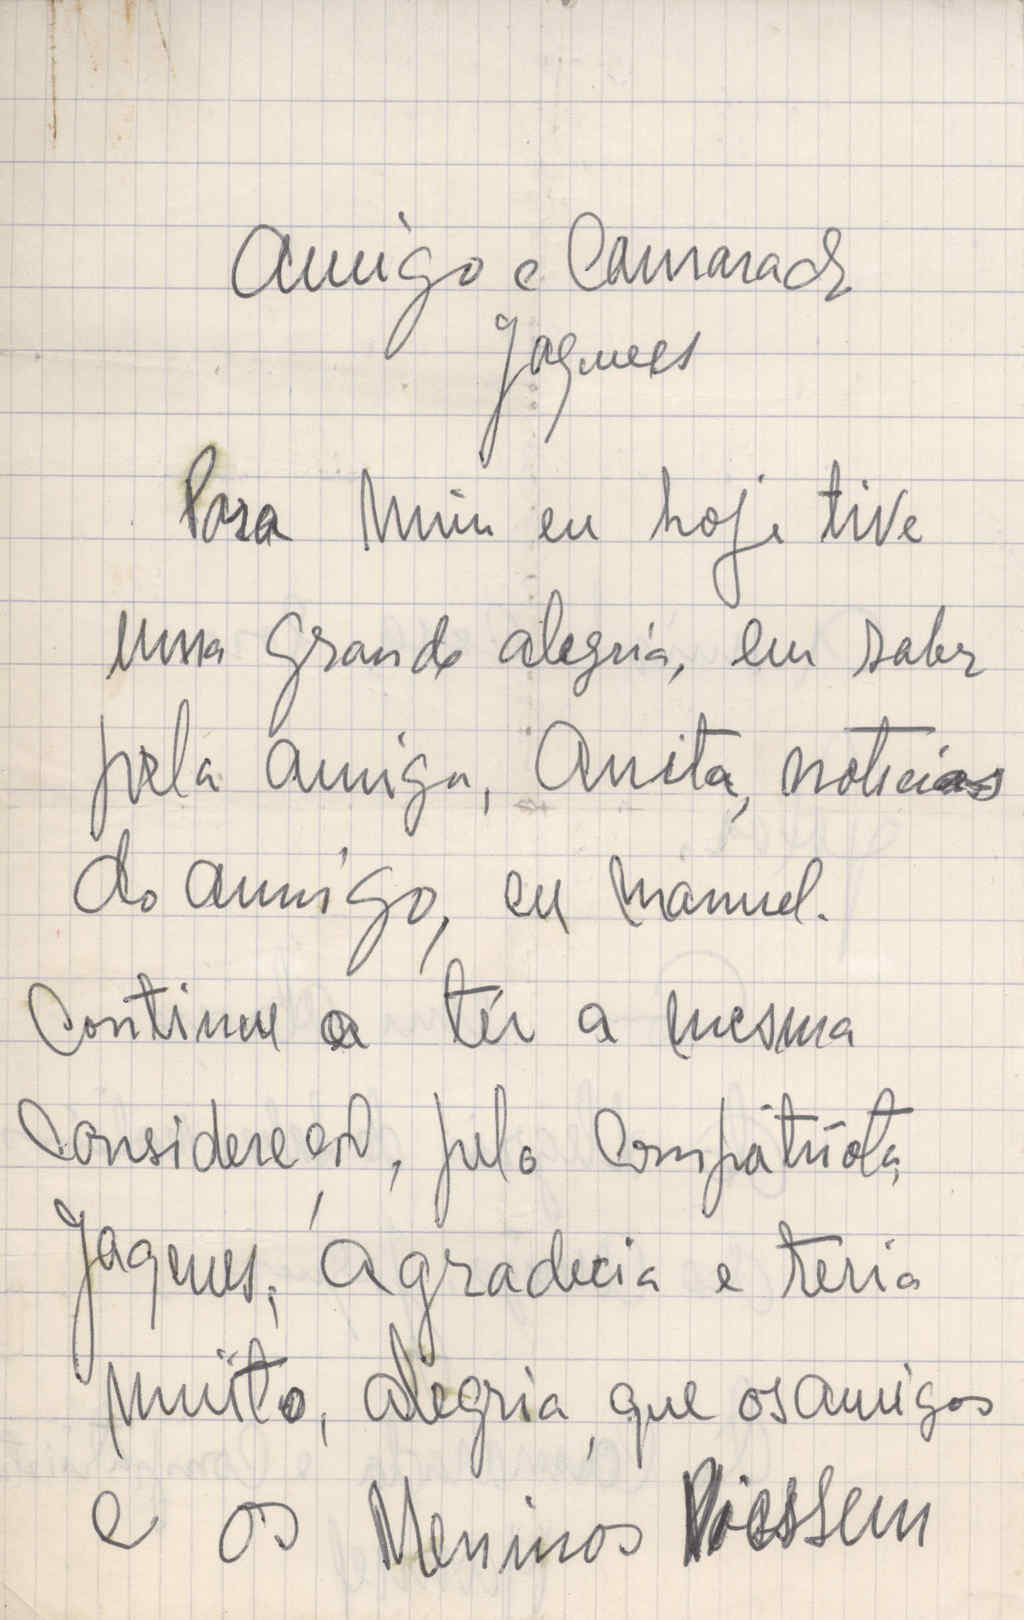 Amigo e Camarada
Jaques
Para Mim eu hoje tive
uma grande alegria, em saber
pela amiga, Anita, noticias
do amigo, eu manuel.
Continue a têr a mesma
Considereção, pelo Compátriota
Jaques, Agradecia e teria
muito, alegria, que os amigos
e os Meninos Viessem